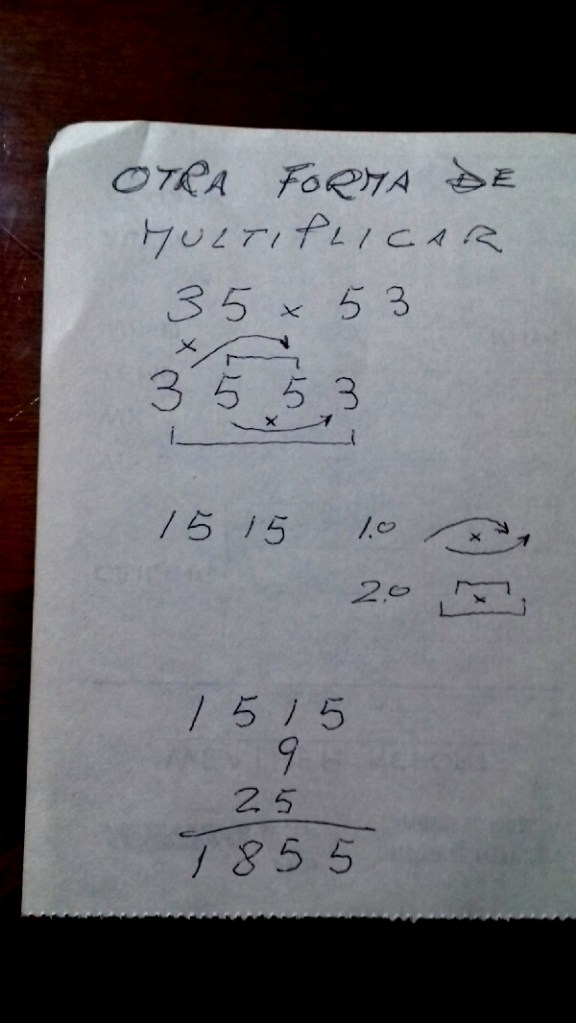 OTRA FORMA DE
MULTIPLICAR
35 x 53
x
3 5 5 3
x
15 15 1.0 x
2.0 x
1515
9
25
1855